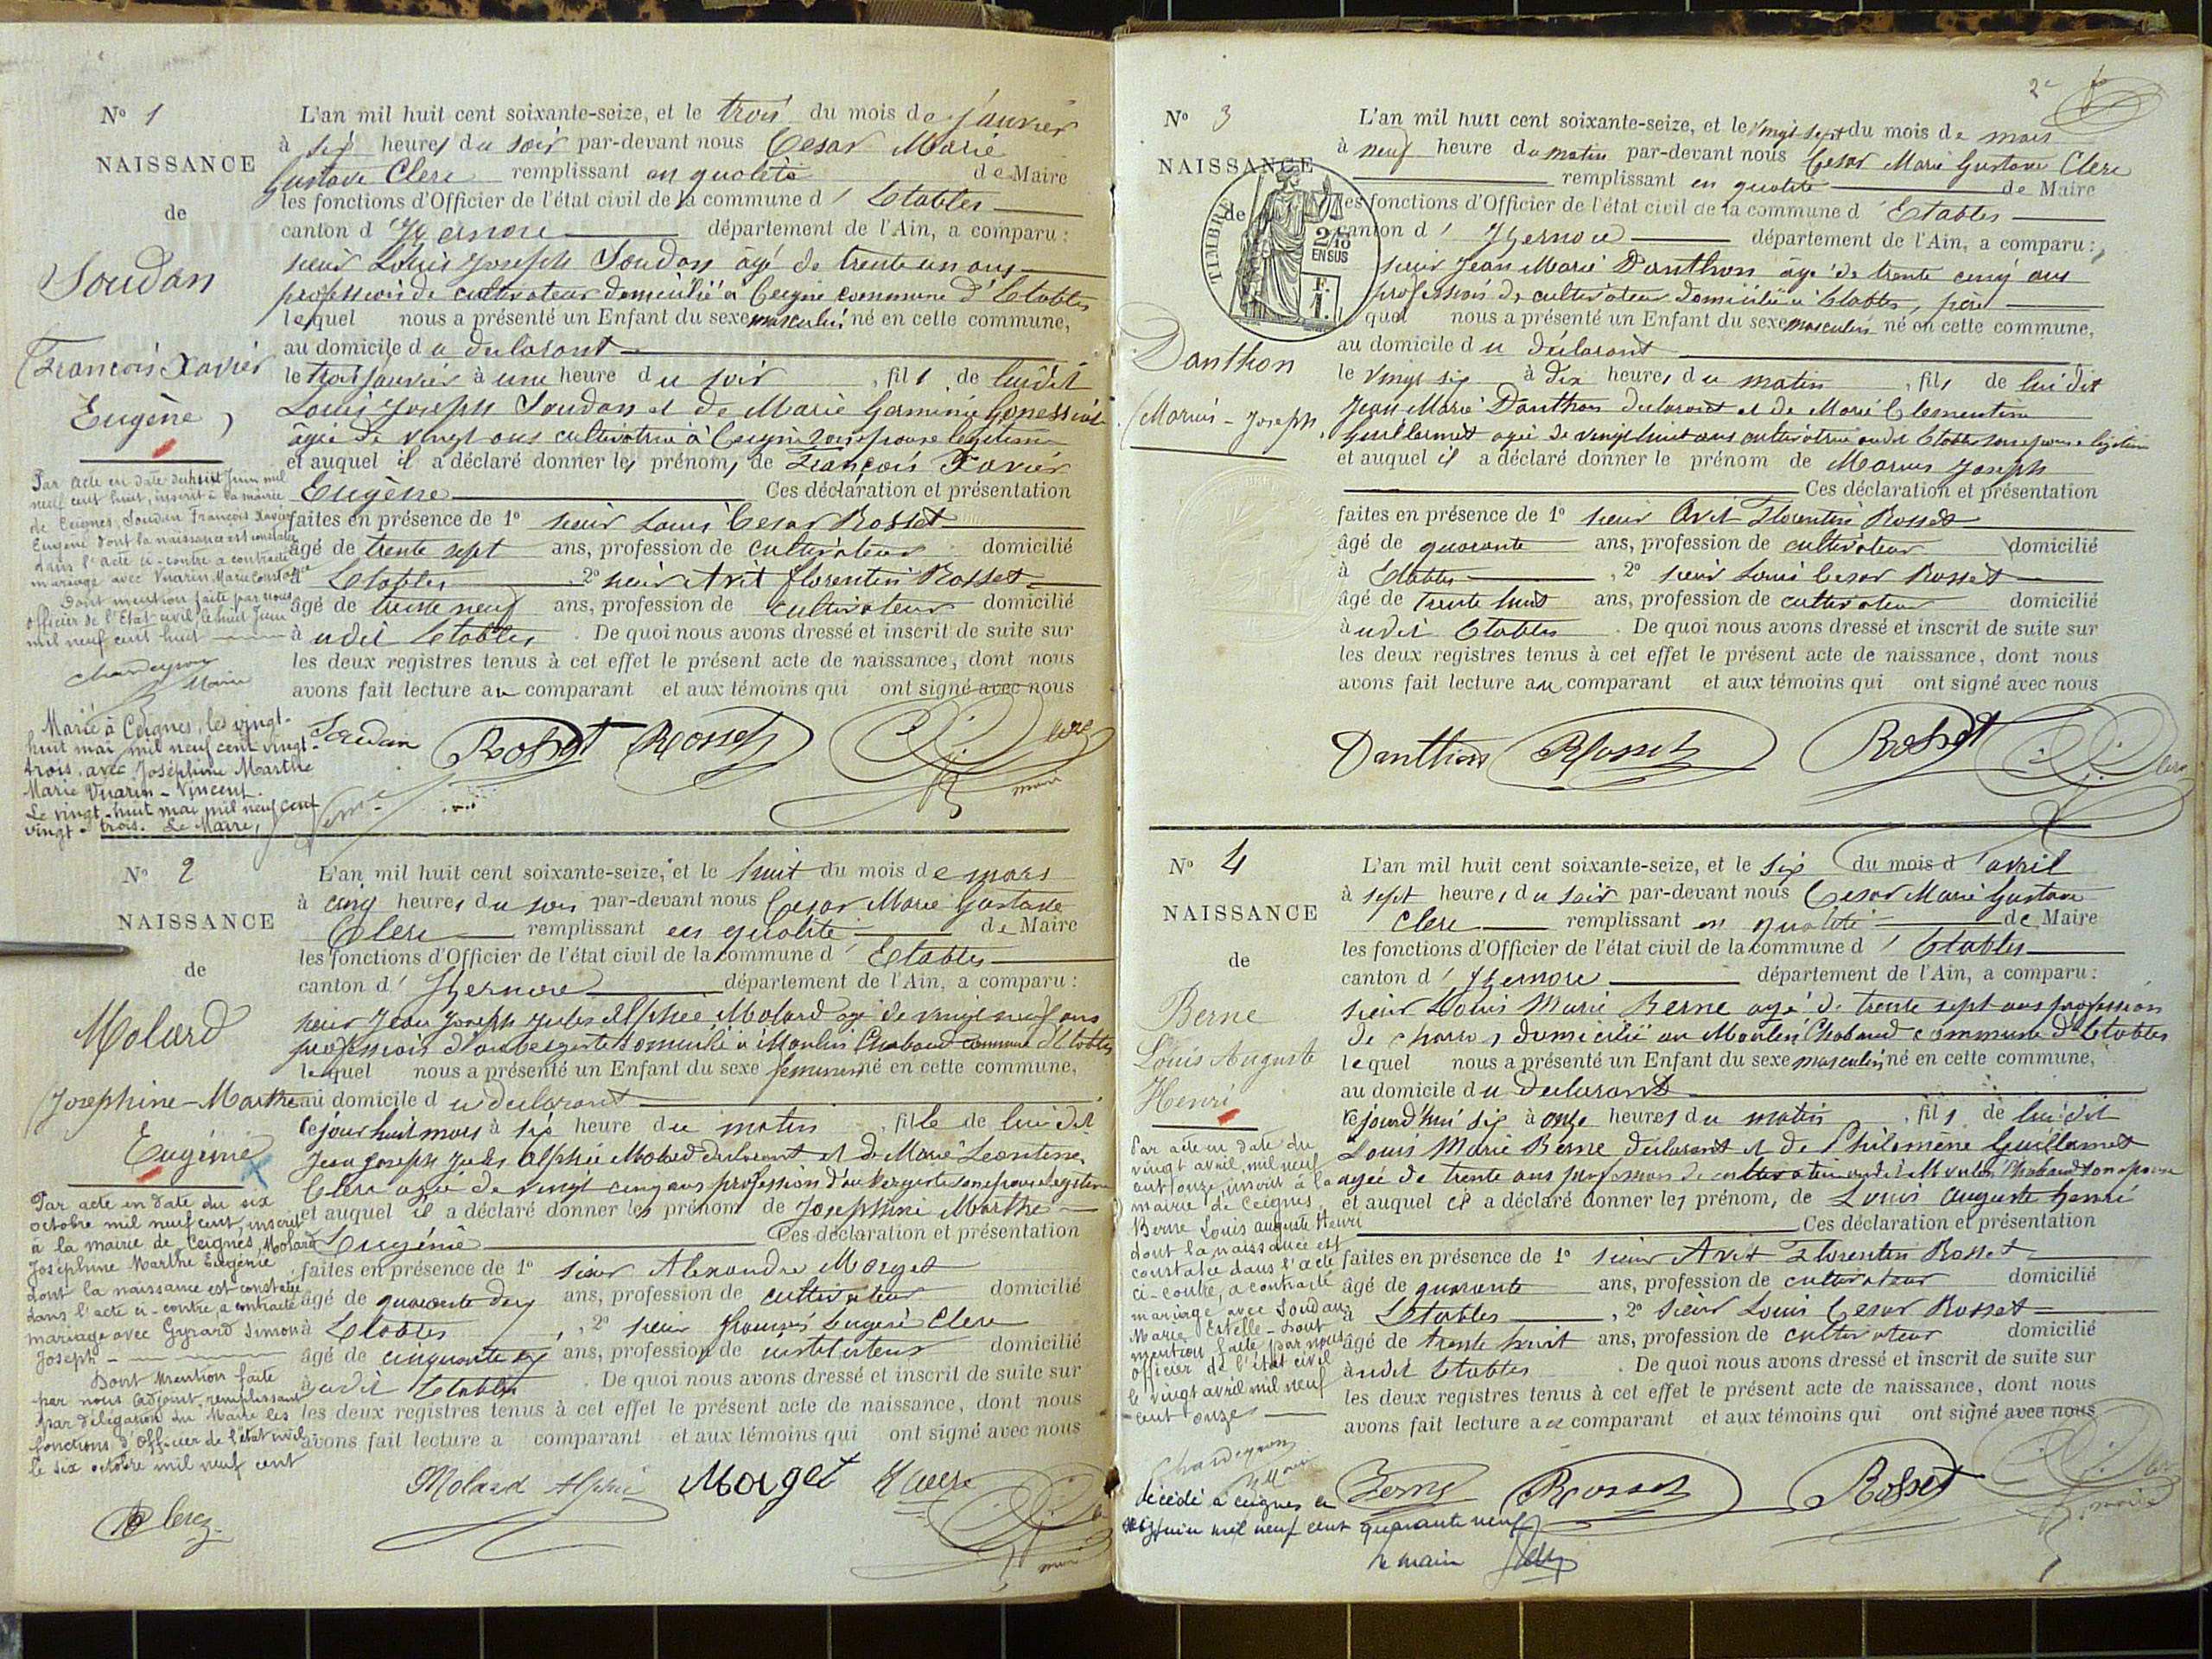 N° 1
NAISSANCE
de
Soudan
(François Xavier
Eugène)
Par acte en date du huit Juin mil
neuf cent huit, inscrit à la mairie
de Ceignes, Soudan François Xavier
Eugène dont la naissance est constatée
dans l'acte ci-contre a contracté
mariage avec Vuarin Marie Constance
Dont mention faite par nous
officier de l'Etat civil le huit Juin
mil neuf cent huit
Chandeyron
Maire
Marié à Ceignes, les vingt-
huit mai mil neuf cent vingt-
trois, avec Joséphine Marthe
Marie Vuarin-Vincent.
Le vingt-huit mai mil neuf cent
vingt-trois. Le Maire,
L'an mil huit cent soixante-seize, et le trois du mois de janvier
à six heures du soir par-devant nous Cesar Marie
Gustave Clerc remplissant en qualité de Maire
les fonctions d'Officier de l'état civil de la commune d'Etables
canton d'Izernore département de l'Ain, a comparu :
sieur Louis Joseph Soudan âgé de trente un ans
profession de cultivateur domicilié à Ceigne commune d'Etables
lequel nous a présenté un Enfant du sexe masculin né en cette commune,
au domicile du déclarant
le trois janvier à une heure du soir, fils de lui dit
Louis Joseph Soudan et de Marie Germinie
âgée de vingt ans cultivatrice à Ceigne son epouse legitime
et auquel il a déclaré donner les prénoms de François Xavier
Eugène Ces déclaration et présentation
faites en présence de 1° sieur Louis Cesar Rosset
âgé de trente sept ans, profession de cultivateur domicilié
à Etables, 2° sieur Avit florentin Rosset
âgé de trente neuf ans, profession de cultivateur domicilié
à udit Etables. De quoi nous avons dressé et inscrit de suite sur
les deux registres tenus à cet effet le présent acte de naissance, dont nous
avons fait lecture au comparant et aux témoins qui ont signé avec nous
Soudan Rosset Rosset Clerc
maire
N° 2
NAISSANCE
de
Molard
(Josephine-Marthe
Eugénie
Par acte en date du six
octobre mil neuf cent, inscrit
à la mairie de Ceignes, Molard
Joséphine Marthe Eugénie
dont la naissance est constatée
dans l'acte ci-contre, a contracté
mariage avec Gyrard Simon
Joseph
Dont mention faite
par nous adjoint, remplissant
par délégation du Maire les
fonctions d'Officier de l'état civil
le six octobre mil neuf cent
Clerc
L'an mil huit cent soixante-seize, et le huit du mois de mars
à cinq heures du soir par-devant nous Cesar Marie Gustave
Clerc remplissant en qualité de Maire
les fonctions d'Officier de l'état civil de la commune d'Etables
canton d'Izernore département de l'Ain, a comparu :
sieur Jean Joseph Jules Alphée Molard agé de vingt neuf ans
profession d'aubergiste domicilié à Moulin Chabaud commune d'Etables
lequel nous a présenté un Enfant du sexe feminin né en cette commune,
au domicile du déclarant
ce jour huit mars à six heure du matin, fille de lui dit
Jean Joseph Jules Alphée Molard declarant et de Marie Leontine
Clerc agée de vingt cinq ans profession d'aubergiste son epouse legitime
et auquel il a déclaré donner les prénom de Josephine Marthe
Eugénie Ces déclaration et présentation
faites en présence de 1° sieur Alexandre Morget
âgé de quarante ans, profession de cultivateur domicilié
à Etables, 2° sieur françois Eugene Clerc
âgé de cinquante ans, profession de instituteur domicilié
à udit Etables. De quoi nous avons dressé et inscrit de suite sur
les deux registres tenus à cet effet le présent acte de naissance, dont nous
avons fait lecture a comparant et aux témoins qui ont signé avec nous
Molard Alphée Morget
maire
2e
N° 3
NAISSANCE
de
TIMBRE
2/10
EN SUS
F.
1.
Danthon
(Marius-Joseph
L'an mil huit cent soixante-seize, et le vingt sept du mois de mars
à neuf heure du matin par-devant nous Cesar Marie Gustave Clerc
remplissant en qualité de Maire
les fonctions d'Officier de l'état civil de la commune d'Etables
canton d'Izernore département de l'Ain, a comparu :
sieur Jean Marie Danthon âgé de trente cinq ans
profession de cultivateur domicilié à Etables, père
quel nous a présenté un Enfant du sexe masculin né en cette commune,
au domicile du déclarant
le vingt six à dix heures du matin, fils de lui dit
Jean Marie Danthon declarant et de Marie Clementine
Guillermet agée de vingt huit ans cultivatrice audit Etables son epouse legitime
et auquel il a déclaré donner le prénom de Marius Joseph
Ces déclaration et présentation
faites en présence de 1° sieur Avit Florentin Rosset
âgé de quarante ans, profession de cultivateur domicilié
à Etables, 2° sieur Louis Cesar Rosset
âgé de trente huit ans, profession de cultivateur domicilié
à udit Etables. De quoi nous avons dressé et inscrit de suite sur
les deux registres tenus à cet effet le présent acte de naissance, dont nous
avons fait lecture au comparant et aux témoins qui ont signé avec nous
Danthon Rosset Rosset Clerc
N° 4
NAISSANCE
de
Berne
Louis Auguste
Henri
Par acte en date du
vingt avril, mil neuf
cent onze, inscrit à la
mairie de Ceignes,
Berne Louis Auguste Henri
dont la naissance est
constatée dans l'acte
ci-contre, a contracté
mariage avec Soudan
Marie Estelle - Dont
mention faite par nous
officier de l'état civil
le vingt avril mil neuf
cent onze
Chandeyron
Maire
décédé à Ceignes le
juin mil neuf cent quarante neuf
le maire
L'an mil huit cent soixante-seize, et le six du mois d'avril
à sept heures du soir par-devant nous Cesar Marie Gustave
Clerc remplissant en qualité de Maire
les fonctions d'Officier de l'état civil de la commune d'Etables
canton d'Izernore département de l'Ain, a comparu :
sieur Louis Marie Berne agé de trente sept ans profession
de charron domicilié au Moulin Chabaud commune d'Etables
lequel nous a présenté un Enfant du sexe masculin né en cette commune,
au domicile du declarant
cejourd'hui six à onze heures du matin, fils de lui dit
Louis Marie Berne declarant et de Philomène Guillermet
agée de trente ans profession de cultivateur audit Moulin Chabaud son epouse
et auquel il a déclaré donner les prénom, de Louis auguste henri
Ces déclaration et présentation
faites en présence de 1° sieur Avit Florentin Rosset
âgé de quarante ans, profession de cultivateur domicilié
à Etables, 2° sieur Louis Cesar Rosset
âgé de trente huit ans, profession de cultivateur domicilié
àudit Etables. De quoi nous avons dressé et inscrit de suite sur
les deux registres tenus à cet effet le présent acte de naissance, dont nous
avons fait lecture au comparant et aux témoins qui ont signé avec nous
Berne Rosset Rosset Clerc
maire